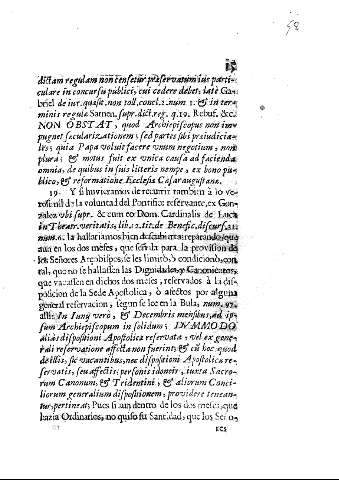 58
15
dictam regulam non censetur præservatum ius parti-
culare in concursu publici, cui cedere debet, latè Ga-
briel de iur. quæsit. non toll. concl. 2. num. 1. & in ter-
minis regulæ Sarnen. supr. dict. reg. q. 19. Rebuf. &c.
NON OBSTAT, quod Archiepiscopus non im-
pugnet secularizationem, sed partes sibi præiudicia-
les; quia Papa voluit facere unum negotium, non
plura; & motus fuit ex unica causa ad facienda
omnia, de quibus in suis litteris nempe, ex bono pu-
blico, & reformatione Ecclesiæ Cæsaraugustanæ.
19. Y si huvieramos de recurrir tambien à lo ve-
rosimil de la voluntad del Pontifice reservante, ex Gon-
zalez ubi supr. & cum eo Dom. Cardinalis de Luca
in Theatr. veritatis, lib. 12. tit. de Benefic. discurs.
num. la hallariamos bien descubierta reparando, que
aun en los dos meses, que señala para la provision de
los Señores Arçobispos, se les limitò, ò condicionò, con
tal, que no se hallassen las Dignidades, y Canonicatos,
que vacassen en dichos dos meses, reservados à la dis-
posicion de la Sede Apostolica, ò afectos por alguna
general reservacion, segun se lee en la Bula, num.
allis: In Iunij verò, & Decembris mensibus, ad ip-
sum Archiepiscopum in solidum; DUMMODO
aliàs dispositioni Apostolicæ reservata, vel ex gene-
rali reservatione affecta non fuerint, & cùm hoc quod
de illis, sic vacantibus, nec dispositioni Apostolicæ re-
servatis, seu affectis, personis idoneis, iuxta Sacro-
rum Canonum, & Tridentini, & aliorum Conci-
liorum generalium dispositionem, providere tenean-
tur, pertineat; Pues si aun dentro de los dos meses, que
hazia Ordinarios, no quiso su Santidad, que los Seño-
res